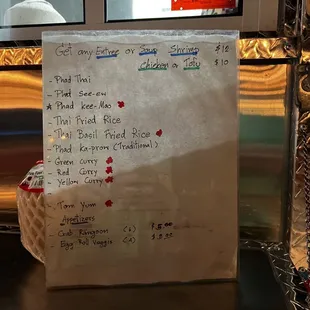 Get any Entree or Soup Shrimp $12
Chicken or Tofu $10
- Phad Thai
- Phad See-ew
* Phad Kee-Mao
- Thai Fried Rice
- Thai Basil Fried Rice
- Phad ka-prow (Traditional)
- Green curry
- Red Curry
- Yellow Curry
- Tom Yum
Appetizers
- Crab Rangoon
- Egg Roll Veggie